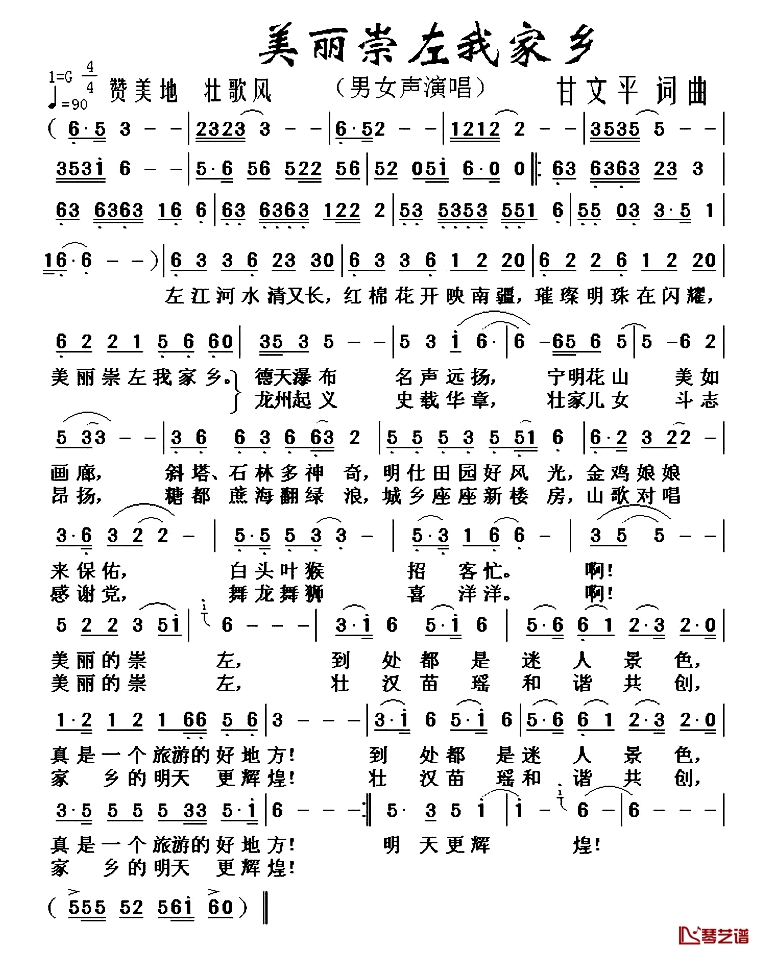 美丽崇左我家乡
1=G 4/4
♩=90 赞美地 壮歌风 （男女声演唱） 甘文平 词曲
( 6·5 3 - - | 2323 3 - - | 6·52 - - | 1212 2 - - | 3535 5 - - |
3531 6 - - | 5·6 56 522 56 | 52 051 6·0 0 ‖: 63 6363 23 3 |
63 6363 16 6 | 63 6363 122 2 | 53 5353 551 6 | 55 03 3·5 1 |
16·6 - - ) | 6 3 3 6 23 30 | 6 3 3 6 1 2 20 | 6 2 2 6 1 2 20 |
左江河水清又长，红棉花开映南疆，璀璨明珠在闪耀，
6 2 2 1 5 6 60 | 35 5 - - | 5 3 1 6· | 6 - 65 5 | 5 - 6 2 |
美丽崇左我家乡。德天瀑布 名声远扬， 宁明花山 美如
龙州起义 史载华章， 壮家儿女 斗志
5 33 - - | 3 6 6 3 6 63 2 | 5 5 5 3 5 51 6 | 6·2 3 22 - |
画廊， 斜塔、石林多神奇，明仕田园好风光，金鸡娘娘
昂扬， 糖都 蔗海翻绿浪，城乡座座新楼房，山歌对唱
3·6 3 2 2 - | 5·5 5 3 3 - | 5·3 1 6 6 - | 3 5 5 - - |
来保佑， 白头叶猴 招 客忙。 啊！
感谢党， 舞龙舞狮 喜 洋洋。 啊！
5 2 2 3 51 | 6 - - - | 3·1 6 5·1 6 | 5·6 6 1 2·3 2·0 |
美丽的崇 左， 到 处都是迷人景色，
美丽的崇 左， 壮 汉苗瑶和谐共创，
1·2 1 2 1 66 5 6 | 3 - - - | 3·1 6 5·1 6 | 5·6 6 1 2·3 2·0 |
真是一个旅游的好地方！ 到 处都是迷人景色，
家 乡的明天 更辉煌！ 壮 汉苗瑶和谐共创，
3·5 5 5 5 33 5·1 | 6 - - - :‖ 5· 3 5 1 | 1 - 6 - | 6 - - - |
真是一个旅游的好地方！ 明 天更辉 煌！
家 乡的明天 更辉煌！
( 555 52 561 60 ) ‖
琴艺谱